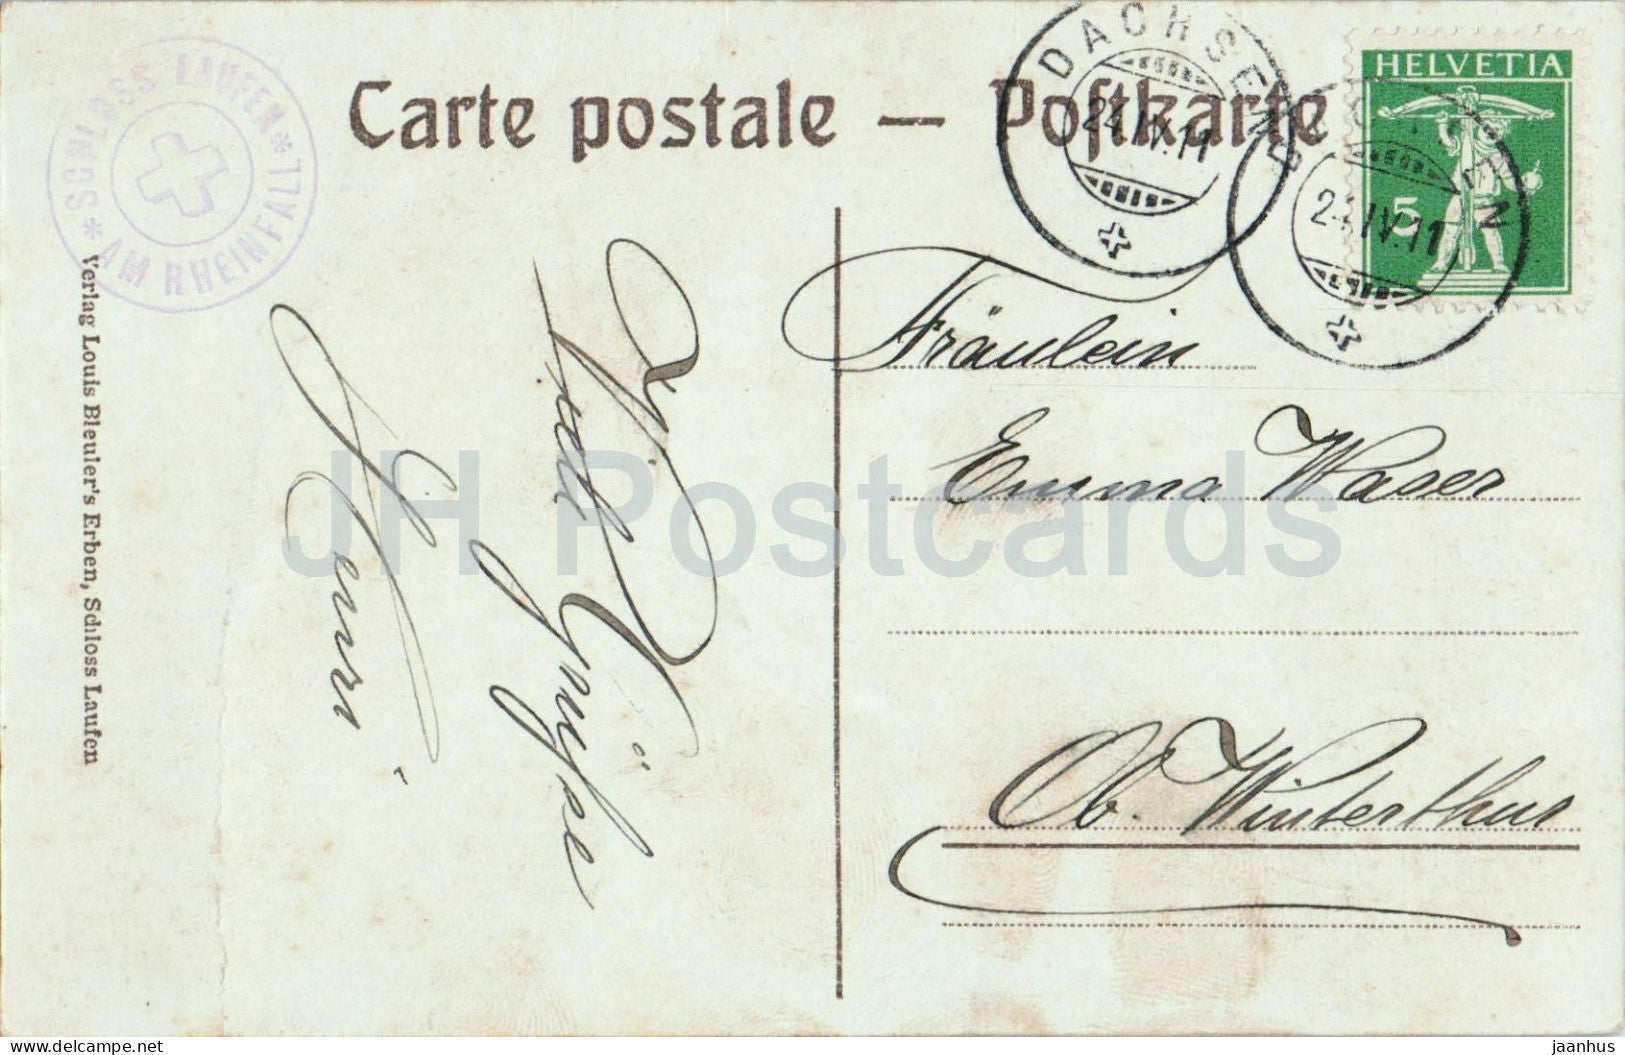 Carte postale — Postkarte
SCHLOSS LAUFEN * AM RHEINFALL *
DACHSEN
24.IV.11
24.IV.11
HELVETIA
5
Verlag Louis Bleuler's Erben, Schloss Laufen
Viele Grüsse
Henri
Fräulein
Emma Waser
Ob. Winterthur
JH Postcards
delcampe.net
jaanhus